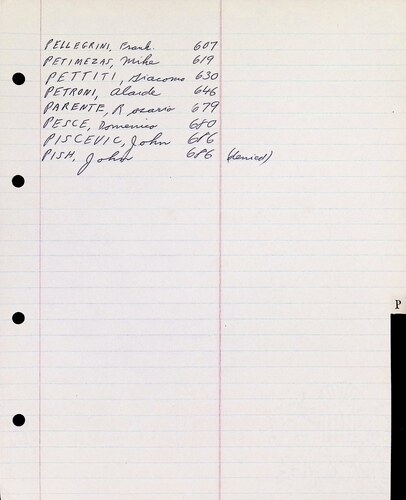 PELLEGRINI, Frank 607
PETIMEZAS, Mike 619
PETTITI, Giacomo 630
PETRONI, Alaide 646
PARENTE, Rosario 679
PESCE, Domenico 680
PISCEVIC, John 686
PISH, John 686 (denied)
P